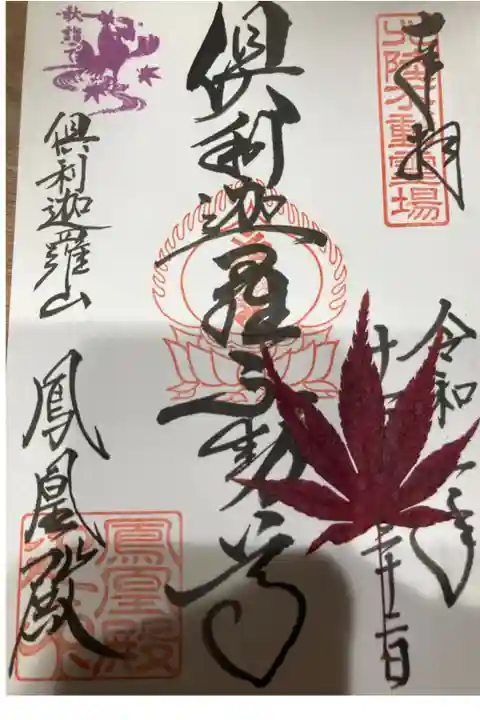 奉拝
北陸不動霊場
令和
年
十
二十二日
倶利迦羅不動尊
秋詣で
倶利迦羅山
鳳凰殿
鳳凰殿